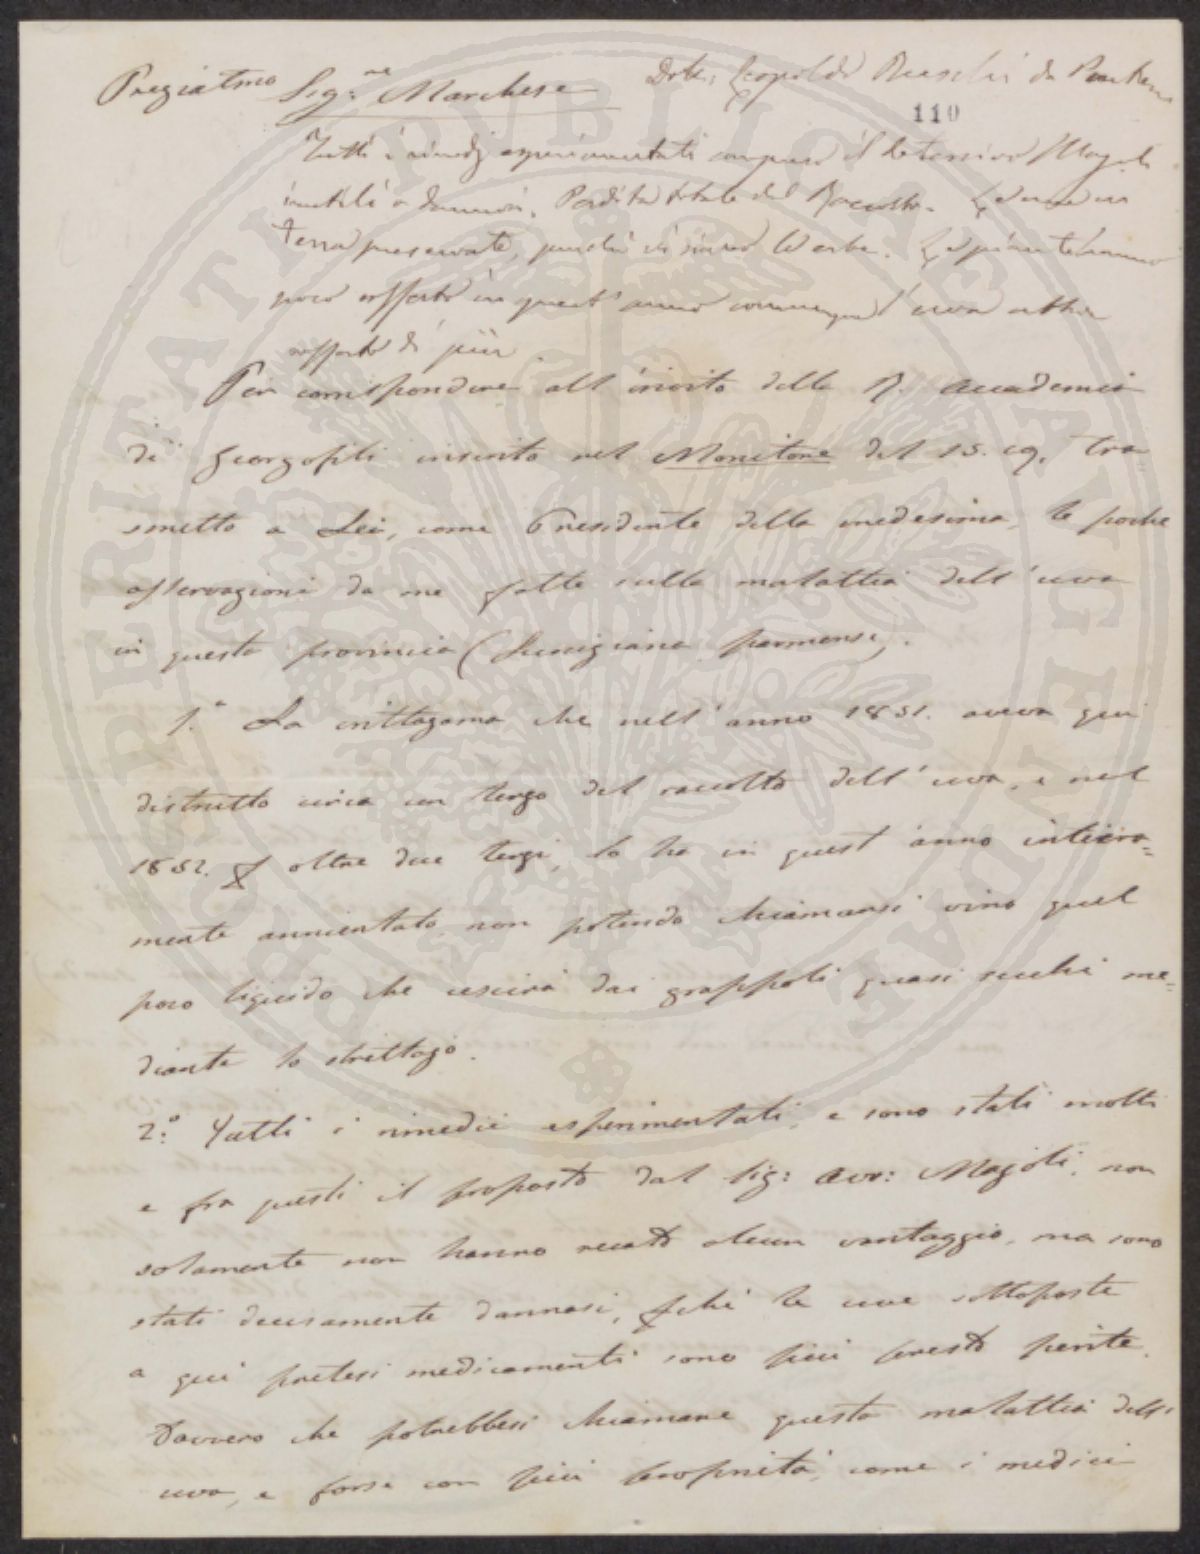 Pregiatmo Sigre Marchese
Dott: Leopoldo da
110
Tutti i rimedj esperimentati compreso il
inutili o dannosi. Perdita totale del Raccolto. Le uve in
terra preservate, purché vi siano le erbe. Le piante hanno
poco sofferto in quest'anno comunque l'uva abbia
sofferto di più
Per corrispondere all'invito della R. Accademia
di Georgofili inserito nel Monitore del 15. cg. tra
smetto a Lei, come Presidente della medesima, le poche
osservazioni da me fatte sulla malattia dell'uva
in questa provincia (Lunigiana parmense).
1.° La crittogama che nell'anno 1851. aveva qui
distrutto circa un terzo del raccolto dell'uva, e nel
1852. oltre due terzi, lo ha in quest'anno intiera=
mente annientato, non potendo chiamarsi vino quel
poco liquido che uscirà dai grappoli quasi secchi me=
diante lo strettojo.
2.° Tutti i rimedii esperimentati, e sono stati molti
e fra questi il proposto dal Sig: Avv: Majoli, non
solamente non hanno recato alcun vantaggio, ma sono
stati decisamente dannosi, perché le uve sottoposte
a quei pretesi medicamenti sono più presto perite.
Davvero che potrebbesi chiamare questa malattia dell'
uva, e forse con più proprietà, come i medici